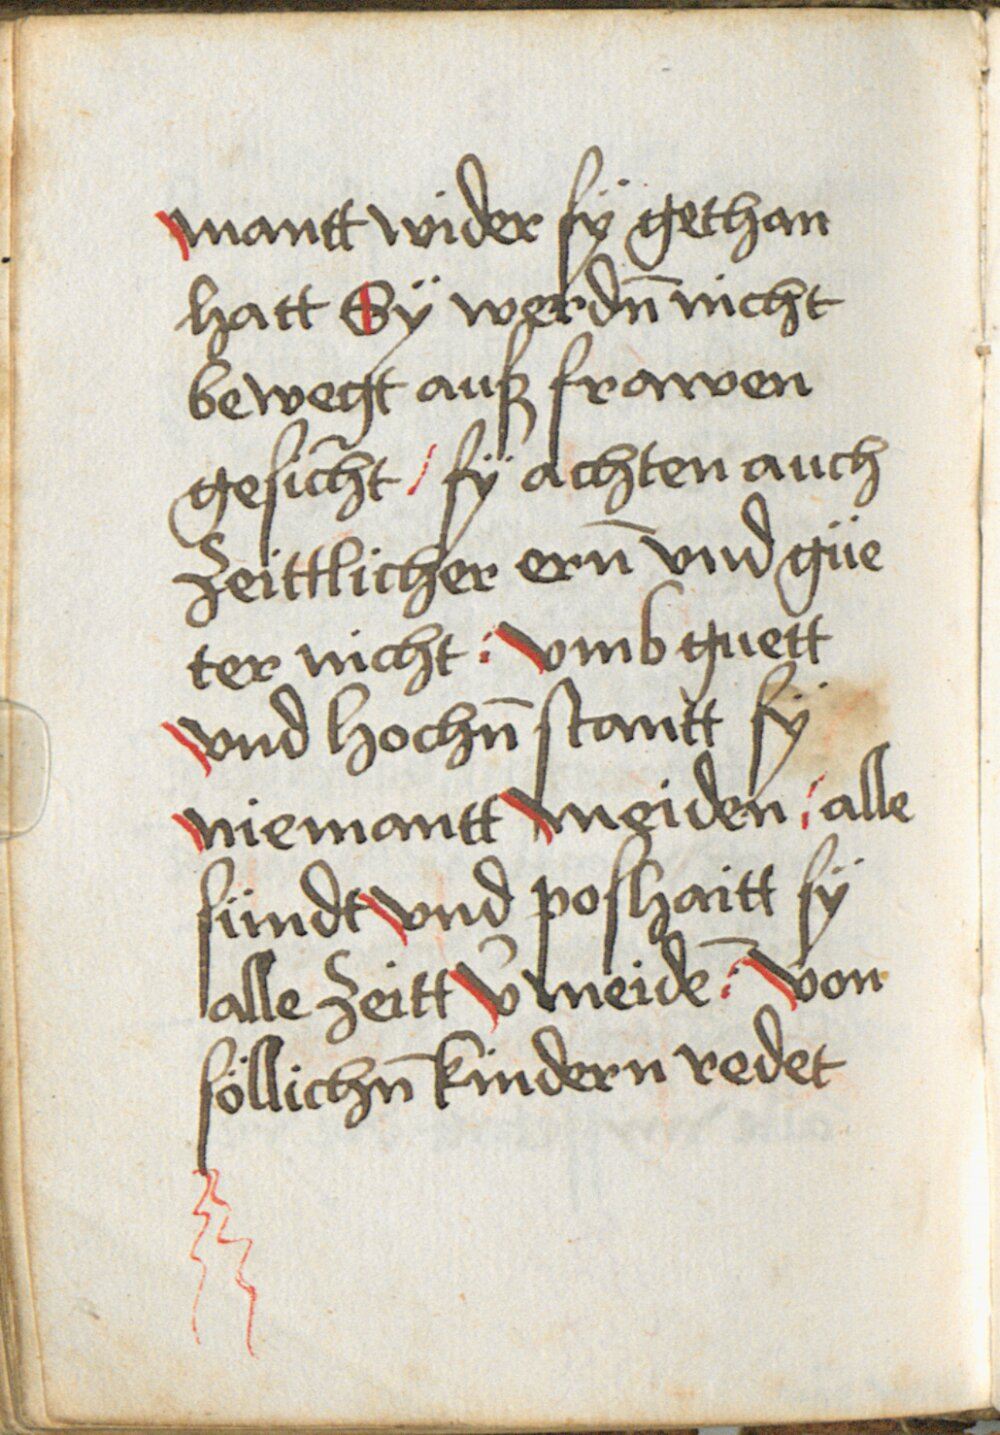 mantt wider sÿ gethan
hatt Sÿ werdn̄ nicht
bewegt auß frawen
gesicht / sÿ achten auch
Zeittlicher ern̄ vnd güe
ter nicht : vmb guett
vnd hochn̄ stantt sÿ
niemantt meiden / alle
sündt vnd poshaitt sÿ
alle Zeitt v̄meidē : von
söllichn̄ kindern redet